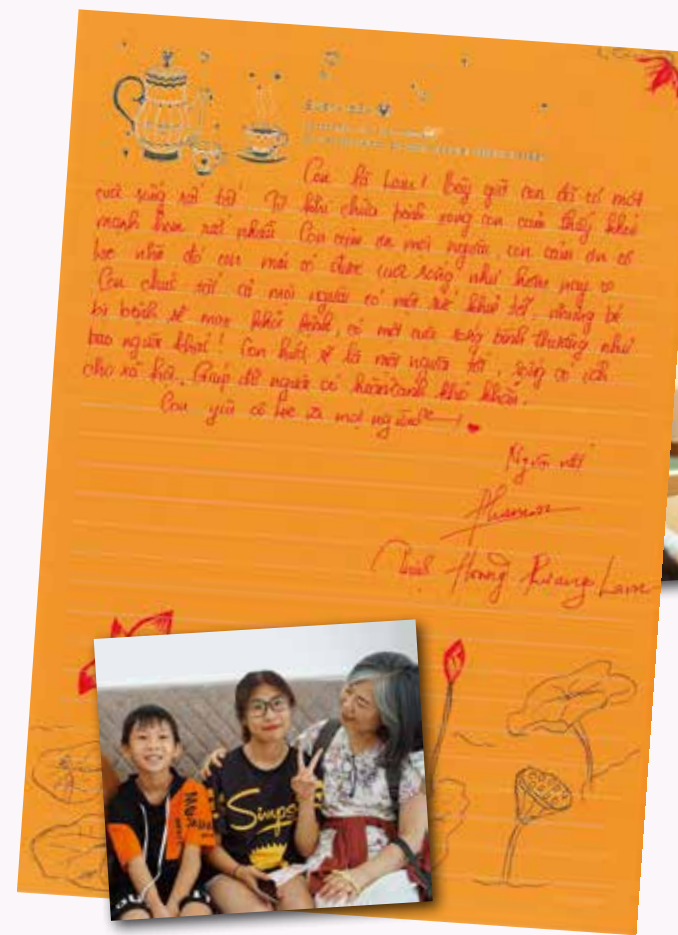 Con là Lam! Bây giờ con đã có một
cuộc sống rất tốt. Từ khi chữa bệnh xong con cảm thấy khoẻ
mạnh hơn rất nhiều. Con cảm ơn mọi người, con cảm ơn cô
hee nhờ đó con mới có được cuộc sống như hôm nay
Con chúc tất cả mọi người có một sức khoẻ tốt, những bé
bị bệnh sẽ mau khỏi bệnh, có một cuộc sống bình thường như
bao người khác! Con hứa sẽ là một người tốt, sống có ích
cho xã hội, Giúp đỡ người có hoàn cảnh khó khăn.
Con yêu cô hee và mọi người
Người viết
Hoàng Lam
Simps